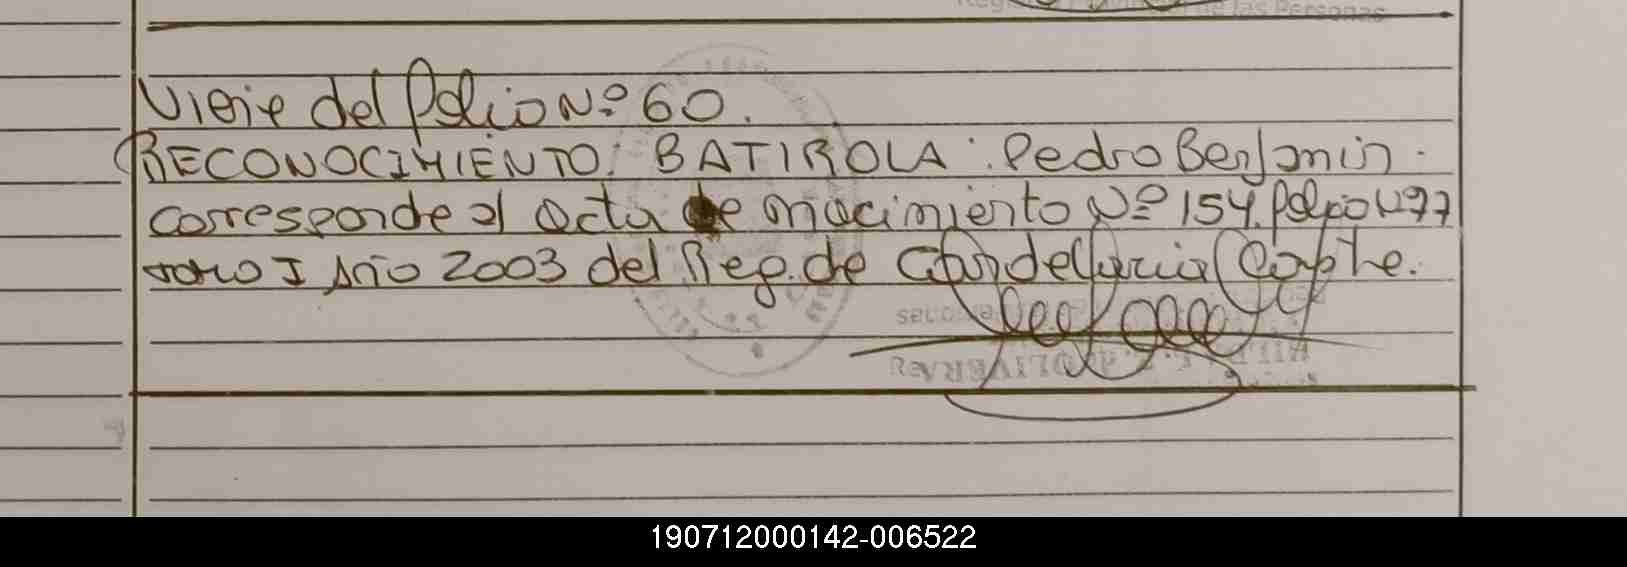 Viene del folio Nº 60.
RECONOCIMIENTO: BATIROLA: Pedro Benjamin.
Corresponde al Acta de nacimiento Nº 154. folio Nº 77
tomo I Año 2003 del Reg. de Candelaria Conste.
190712000142-006522